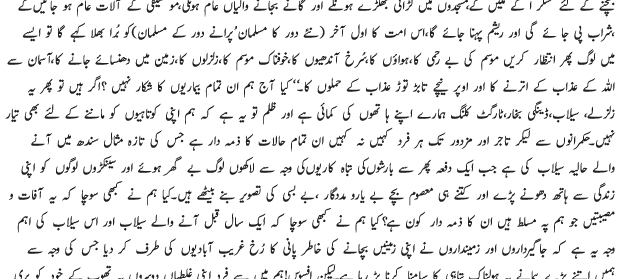 بچنے کے لئے مسکرا کے ملیں گے،مسجدوں میں لڑائی جھگڑے ہونگے اور گانے بجانے والیاں عام ہونگی،موسیقی کے آلات عام ہو جائیں گے
،شراب پی جائے گی اور ریشم پہنا جائے گا،اس امت کا اول آخر (نئے دور کا مسلمان' پرانے دور کے مسلمان)کو بُرا بھلا کہے گا تو ایسے
میں لوگ پھر انتظار کریں موسم کی بے رحمی کا،ہواؤں کا،سُرخ آندھیوں کا،خوفناک موسم کا،زلزلوں کا،زمین میں دھنسائے جانے کا،آسمان سے
اللہ کے عذاب کے اترنے کا اور اوپر نیچے تابڑ توڑ عذاب کے حملوں کا۔‘‘کیا آج ہم ان تمام بیماریوں کا شکار نہیں ؟اگر ہیں تو پھر یہ
زلزلے، سیلاب،ڈینگی بخار،ٹارگٹ کلنگ ہمارے اپنے ہاتھوں کی کمائی ہے اور ظلم تو یہ ہے کہ ہم اپنی کوتاہیوں کو ماننے کے لئے بھی تیار
نہیں۔حکمرانوں سے لیکر تاجر اور مزدور تک ہر فرد کہیں نہ کہیں ان تمام حالات کا ذمہ دار ہے جس کی تازہ مثال سندھ میں آنے
والے حالیہ سیلاب کی ہے جب ایک دفعہ پھر سے بارشوں کی تباہ کاریوں کی وجہ سے لاکھوں لوگ بے گھر ہوئے اور سینکڑوں لوگوں کو اپنی
زندگی سے ہاتھ دھونے پڑے اور کتنے ہی معصوم بچے بے یارو مددگار ،بے بسی کی تصویر بنے بیٹھے ہیں۔کیا ہم نے کبھی سوچا کہ یہ آفات و
مصیبتیں جو ہم پہ مسلط ہیں ان کا ذمہ دار کون ہے؟کیا ہم نے کبھی سوچا کہ ایک سال قبل آنے والے سیلاب اور اس سیلاب کی اہم
وجہ یہ ہے کہ جاگیرداروں اور زمینداروں نے اپنی زمینیں بچانے کی خاطر پانی کا رُخ غریب آبادیوں کی طرف کر دیا جس کی وجہ سے